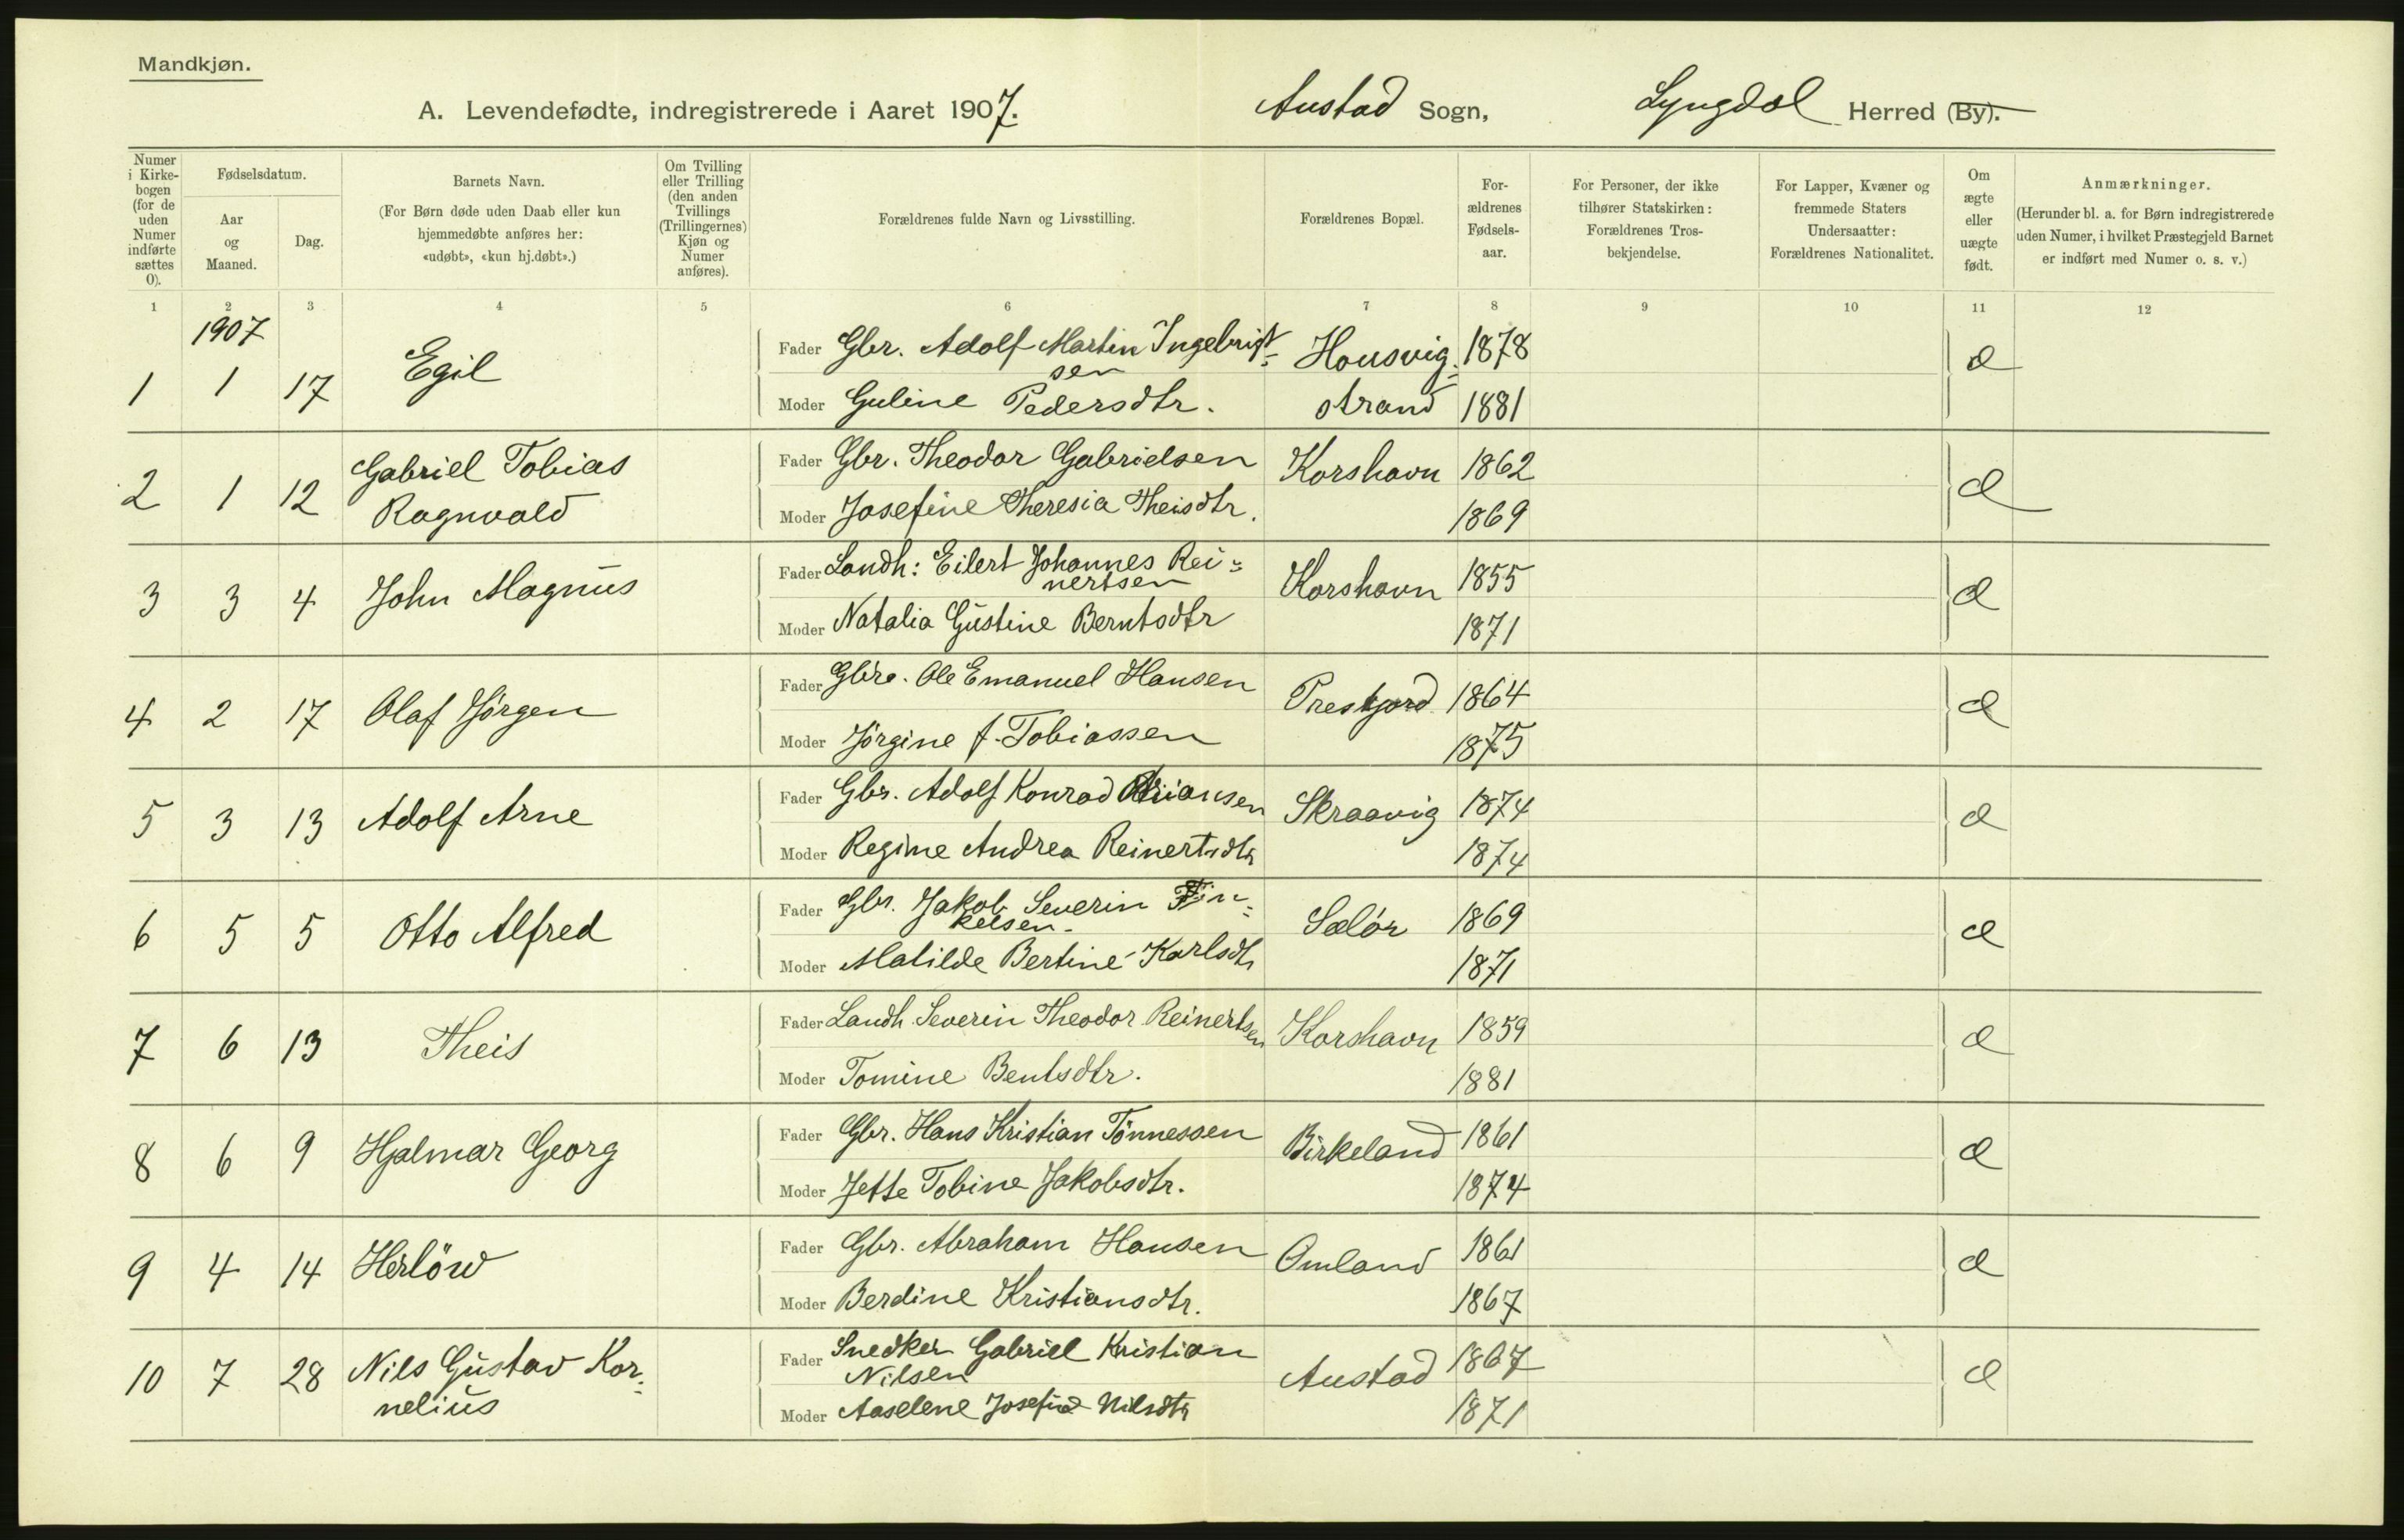 Mandkjøn.
A. Levendefødte, indregistrerede i Aaret 1907. Austad Sogn, Lyngdal Herred (By).
Numer i Kirkebogen (for de uden Numer indførte sættes 0).
Fødselsdatum.
Aar og Maaned.
Dag.
Barnets Navn.
(For Børn døde uden Daab eller kun hjemmedøbte anføres her: «udøbt», «kun hj.døbt».)
Om Tvilling eller Trilling (den anden Tvillings (Trillingernes) Kjøn og Numer anføres).
Forældrenes fulde Navn og Livsstilling.
Forældrenes Bopæl.
Forældrenes Fødselsaar.
For Personer, der ikke tilhører Statskirken: Forældrenes Trosbekjendelse.
For Lapper, Kvæner og fremmede Staters Undersaatter: Forældrenes Nationalitet.
Om ægte eller uægte født.
Anmærkninger.
(Herunder bl. a. for Børn indregistrerede uden Numer, i hvilket Præstegjeld Barnet er indført med Numer o. s. v.)
1 2 3 4 5 6 7 8 9 10 11 12
1907
1 1 17 Egil Fader Gbr. Adolf Martin Ingebrigt-sen Housvig- 1878 æ
Moder Guline Pedersdtr. strand 1881
2 1 12 Gabriel Tobias Fader Gbr. Theodor Gabrielsen Korshavn 1862 æ
Ragnvald Moder Josefine Theresia Theisdtr. 1869
3 3 4 John Magnus Fader Landh: Eilert Johannes Rei-nertsen Korshavn 1855 æ
Moder Natalia Gustine Berntsdtr 1871
4 2 17 Olaf Jørgen Fader Gbr. Ole Emanuel Hansen 1864 æ
Moder Jørgine f. Tobiassen 1875
5 3 13 Adolf Arne Fader Gbr. Adolf Konrad Skraavig 1874 æ
Moder Regine Andrea Reinertsdtr 1874
6 5 5 Otto Alfred Fader Gbr. Jakob Severin Fin-kelsen. Selör 1869 æ
Moder Matilde Bertine Karlsdtr 1871
7 6 13 Theis Fader Landh. Severin Theodor Reinertsen Korshavn 1859 æ
Moder Tomine Bentsdtr. 1881
8 6 9 Hjalmar Georg Fader Gbr. Hans Kristian Tönnessen Birkeland 1861 æ
Moder Jette Tobine Jakobsdtr. 1874
9 4 14 Herlöw Fader Gbr. Abraham Hansen Omland 1861 æ
Moder Berdine Kristiansdtr. 1867
10 7 28 Nils Gustav Kor- Fader Snedker Gabriel Kristian Nilsen Austad 1867 æ
nelius Moder Aaselene Josefine Nilsdtr 1871